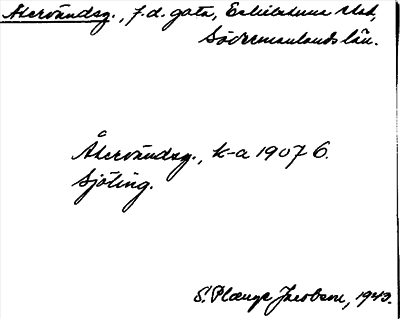 Återvändsg., f.d. gata, Eskilstuna stad,
Södermanlands län.
Återvändsg., k-a 1907 6.
Sjöling.
S. Plænge Jacobson, 1940.